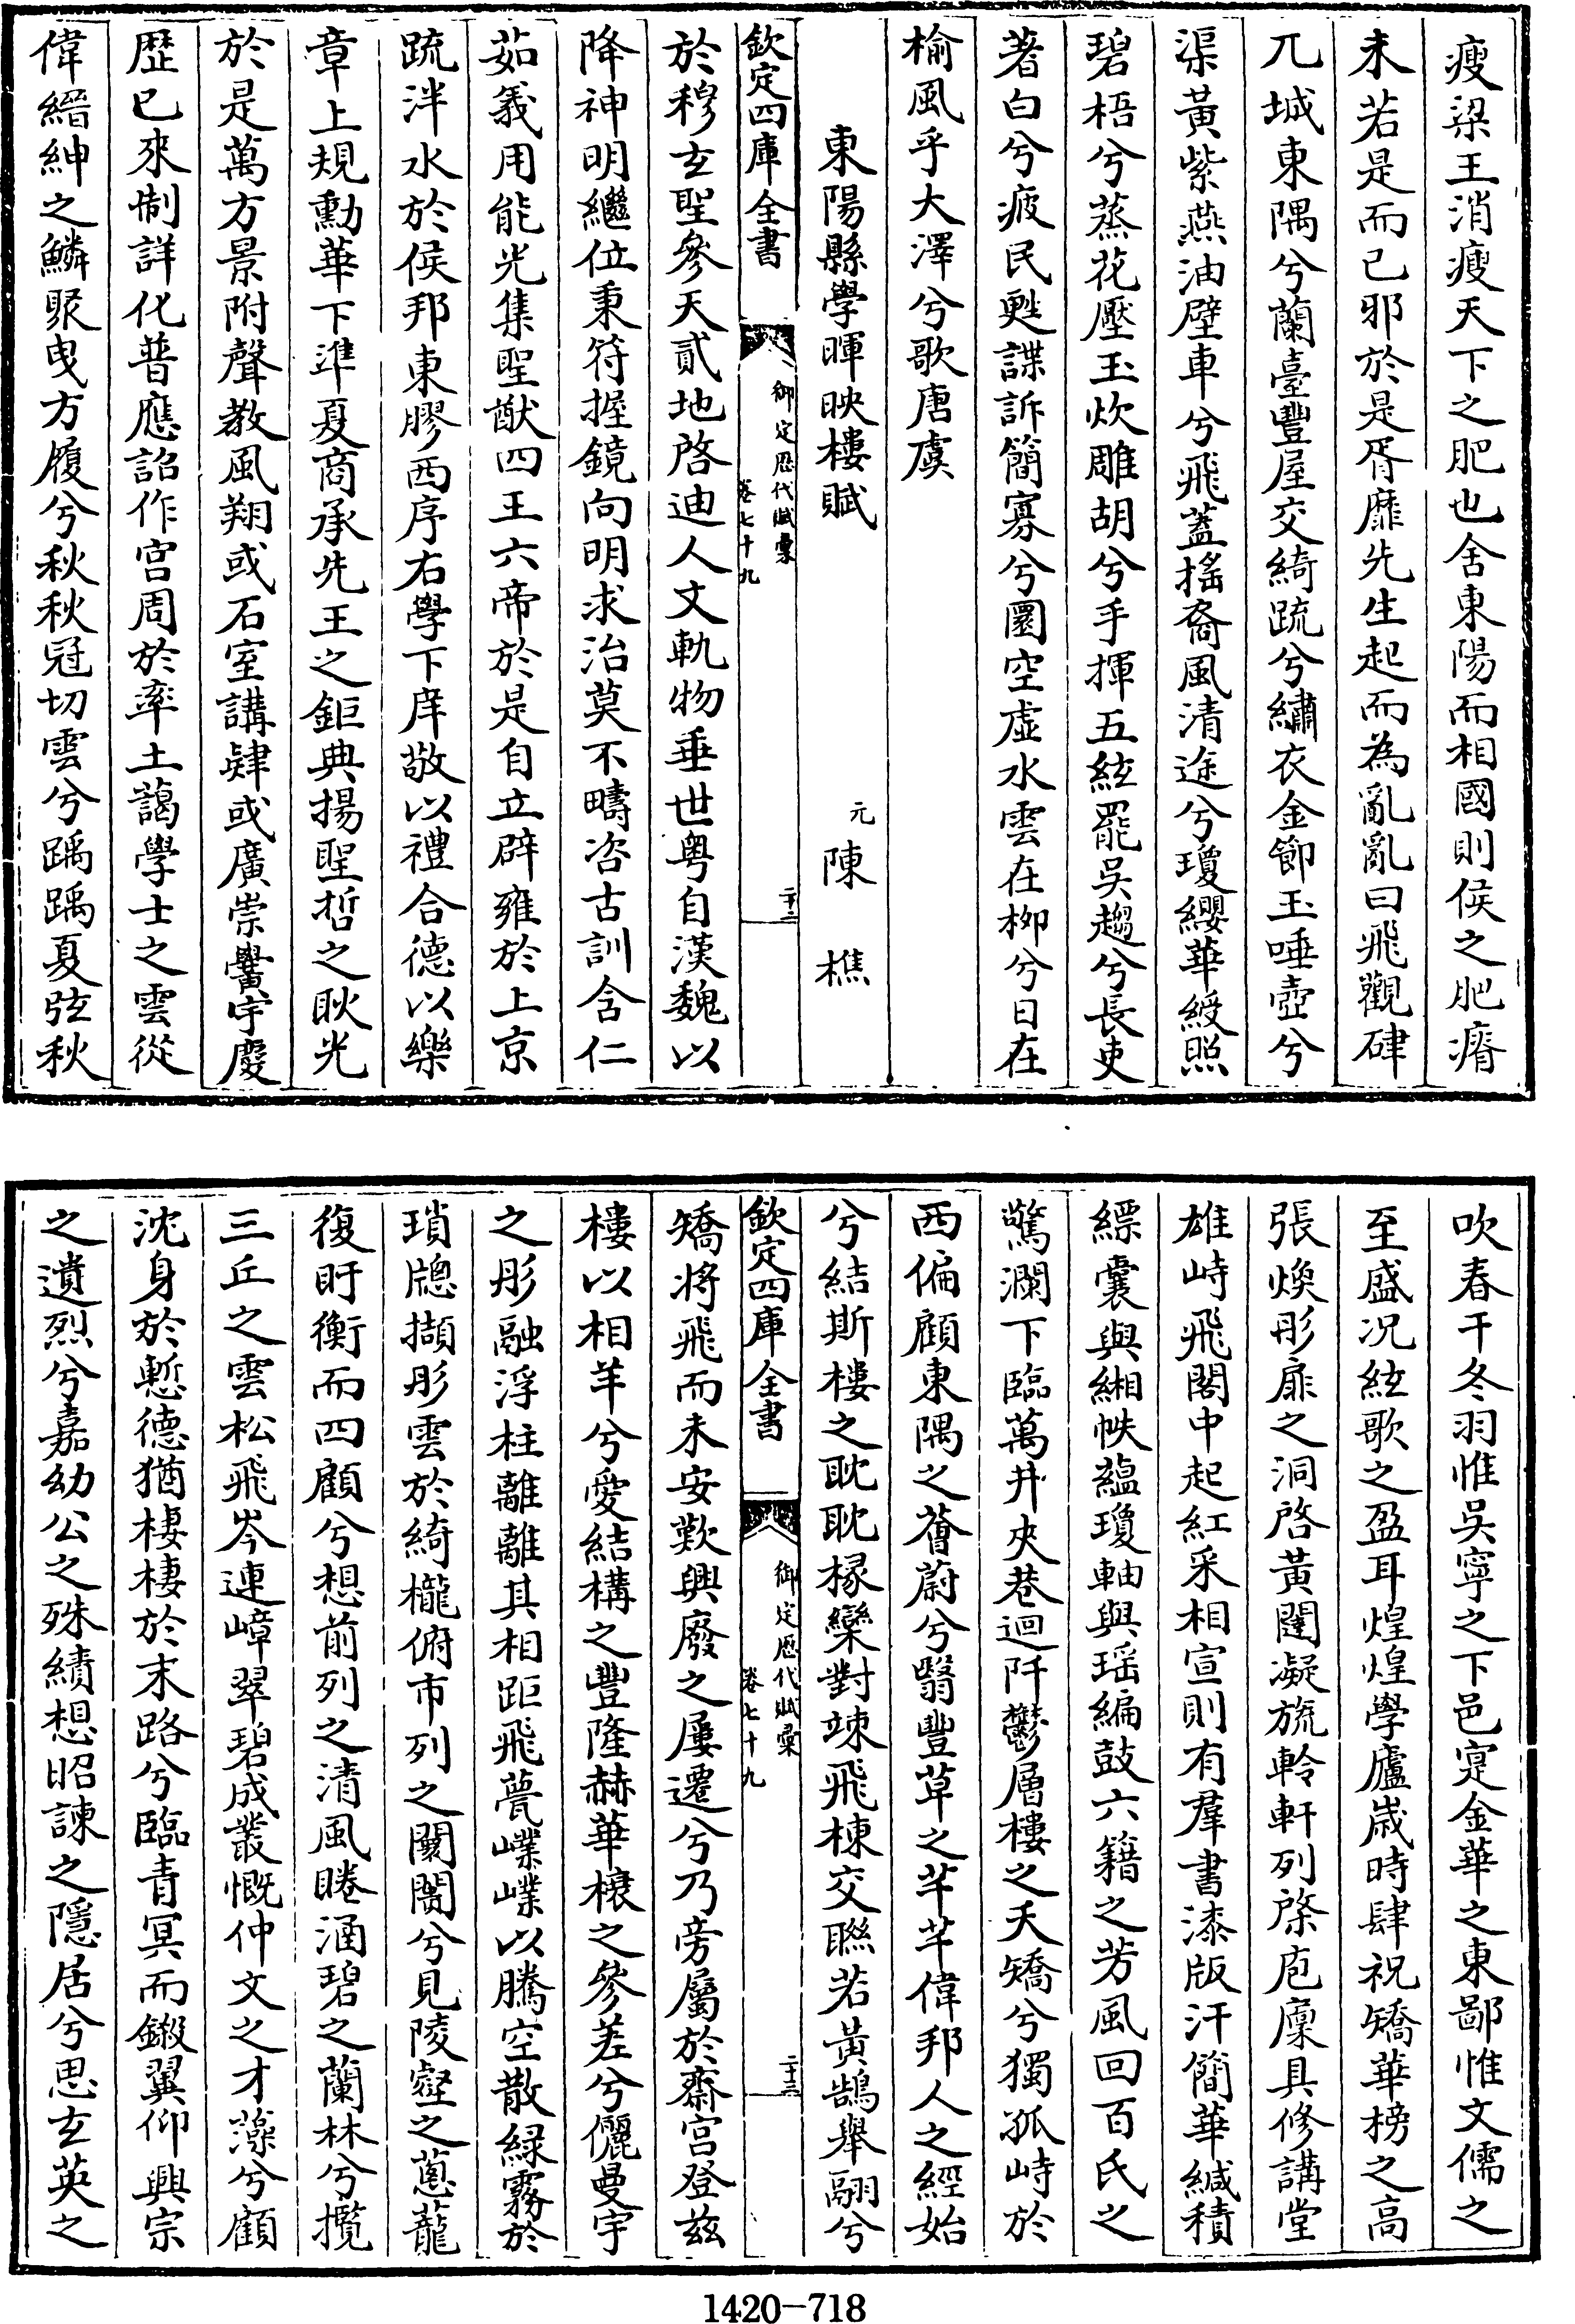 瘦梁王消瘦天下之肥也舍東陽而相國則侯之肥瘠
未若是而已邪於是胥靡先生起而為亂亂曰飛觀硉
兀城東隅兮蘭臺豐屋交綺疏兮繡衣金節玉唾壺兮
渠黃紫燕油壁車兮飛蓋搖裔風清途兮瓊纓華綬照
碧梧兮蒸花壓玉炊雕胡兮手揮五絃罷吳趨兮長吏
著白兮疲民甦諜訴簡寡兮圜空虛水雲在柳兮日在
榆風乎大澤兮歌唐虞
東陽縣學暉映樓賦
元 陳樵
欽定四庫全書
御定歷代賦彙
卷七十九
二十二
於穆玄聖參天貳地啓迪人文軌物垂世粵自漢魏以
降神明繼位秉符握鏡向明求治莫不疇咨古訓含仁
茹義用能光集聖猷四王六帝於是自立辟雍於上京
疏泮水於侯邦東膠西序右學下庠敬以禮合德以樂
章上規勳華下準夏商承先王之鉅典揚聖哲之耿光
於是萬方景附聲教風翔或石室講肄或廣崇黌宇慶
歷已來制詳化普應詔作宮周於率土藹學士之雲從
偉縉紳之鱗聚曳方履兮秋秋冠切雲兮踽踽夏弦秋
吹春干冬羽惟吳寧之下邑寔金華之東鄙惟文儒之
至盛况絃歌之盈耳煌煌學廬歲時肆祝矯華榜之高
張煥彤扉之洞啓黃闥凝旒軨軒列棨庖廩具修講堂
雄峙飛閣中起紅采相宣則有羣書漆版汗簡華緘積
縹囊與緗帙蘊瓊軸與瑶編鼓六籍之芳風回百氏之
驚瀾下臨萬井夾巷迴阡鬱層樓之夭矯兮獨孤峙於
西偏顧東隅之薈蔚兮翳豐草之芊芊偉邦人之經始
兮結斯樓之耽耽椽欒對竦飛棟交聯若黃鵠舉翮兮
欽定四庫全書
御定歷代賦彙
卷七十九
二十三
矯將飛而未安歎興廢之屢遷兮乃旁屬於齋宮登茲
樓以相羊兮愛結構之豐隆赫華榱之參差兮儷曼宇
之彤融浮柱離離其相距飛甍嶫嶫以騰空散綠霧於
瑣牕擷彤雲於綺櫳俯市列之闤闠兮見陵壑之蔥蘢
復盱衡而四顧兮想前列之清風睠涵碧之蘭林兮攬
三丘之雲松飛岑連嶂翠碧成叢慨仲文之才藻兮顧
沈身於慙德猶棲棲於末路兮臨青冥而鎩翼仰興宗
之遺烈兮嘉幼公之殊績想昭諫之隱居兮思玄英之
1420-718